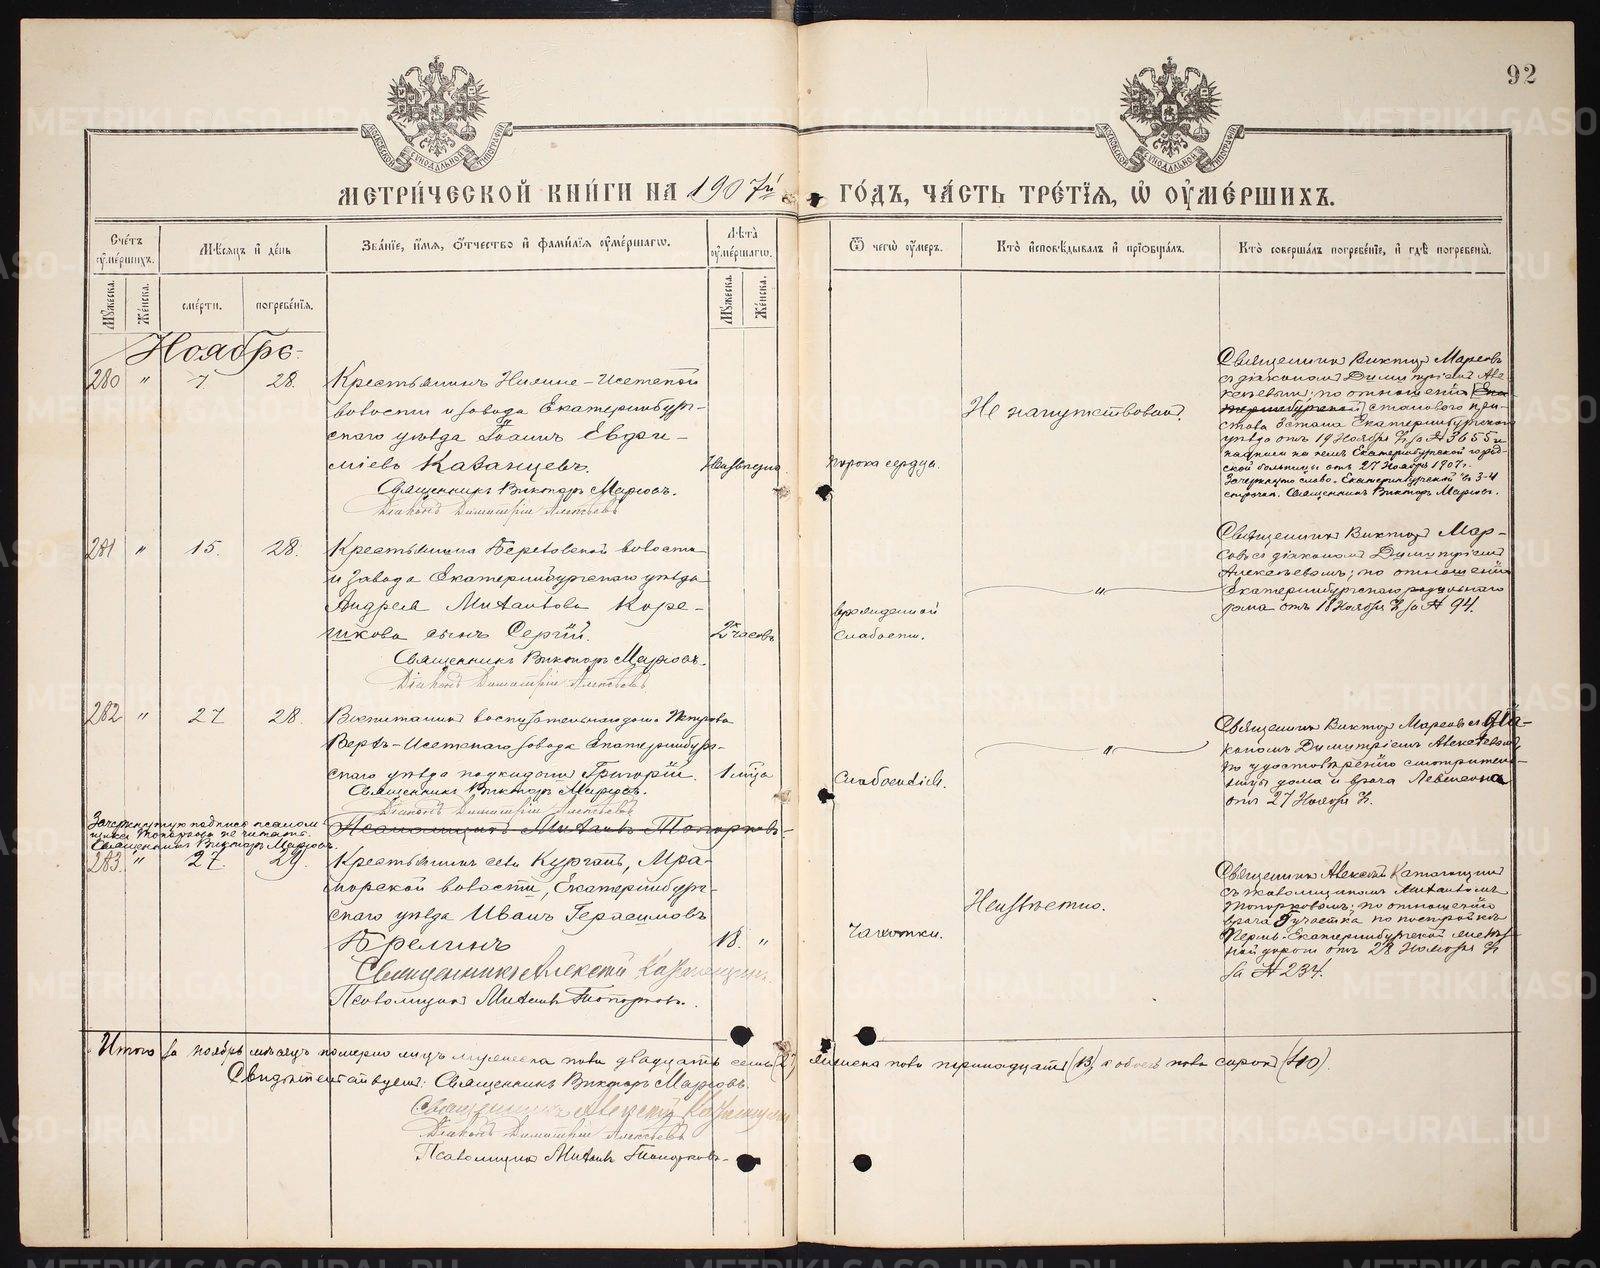 92
МОСКОВСКОЙ СУНОДАЛЬНОЙ ТИПОГРАФІИ
МОСКОВСКОЙ СУНОДАЛЬНОЙ ТИПОГРАФІИ
МЕТРИ́ЧЕСКОЙ КНИ́ГИ НА 1907й ГО́ДЪ, ЧА́СТЬ ТРЕ́ТІѦ, Ѡ҆ ОУ҆МЕ́РШИХЪ.
Сче́тъ оу҆ме́ршихъ.
Мѣ́сяцъ и҆ де́нь
Зва́ніе, и҆́мя, ѻ҆́тчество и҆ фами́лїя оу҆ме́ршагѡ.
Лѣ́та оу҆ме́ршагѡ.
Ѿ чегѡ̀ оу҆́меръ.
Кто̀ и҆сповѣ́дывалъ и҆ прїѻбща́лъ.
Кто̀ соверша́лъ погребе́ніе, и҆ гдѣ̀ погребены̀.
Му́жеска.
Же́нска.
сме́рти.
погребе́нія.
Му́жеска.
Же́нска.
Ноябрь
280 " 7 28.
Крестьянинъ Нижне-Исетской
волости и завода Екатеринбург-
скаго уѣзда Іоаннъ Евфи-
міевъ Казанцевъ. Неизвѣстно.
Священникъ Викторъ Марковъ.
Діаконъ Димитрій Алексѣевъ
порока сердца.
Не напутствованъ.
Священникъ Викторъ Марковъ
съ діакономъ Димитріемъ Але-
ксѣевымъ; по отношенію Ека-
теринбургской станового при-
става 3 стана Екатеринбургскаго
уѣзда отъ 19 Ноября за № 3655 и
надписи на немъ Екатеринбургской город-
ской больницы отъ 27 Ноября 1907 г.
Зачеркнуто слово "Екатеринбургской" въ 3-4
строчкѣ. Священникъ Викторъ Марковъ.
281 " 15. 28.
Крестьянина Березовской волости
и завода Екатеринбургскаго уѣзда
Андрея Михаилова Коре-
шкова сынъ Сергій. 2 часовъ
Священникъ Викторъ Марковъ.
Діаконъ Димитрій Алексѣевъ
врожденной
слабости.
"
Священникъ Викторъ Мар-
ковъ съ діакономъ Димитріемъ
Алексѣевымъ; по отношенію
Екатеринбургскаго родильнаго
дома отъ 18 Ноября за № 94.
282 " 27 28.
Воспитанникъ воспитательнаго дома Петрова
Верхъ-Исетскаго завода Екатеринбург-
скаго уѣзда подкидышъ Григорій. 1 мѣсяца
Священникъ Викторъ Марковъ.
Діаконъ Димитрій Алексѣевъ
Псаломщикъ Михаилъ Топорковъ.
Слабосилія.
"
Священникъ Викторъ Марковъ и діа-
кономъ Димитріемъ Алексѣевымъ
по удостовѣренію смотритель-
ницы дома и врача
отъ 27 Ноября
Зачеркнутую подпись псалом-
щика Топоркова не читать.
Священникъ Викторъ Марковъ.
283. " 27. 29.
Крестьянинъ села Курганъ, Мра-
морской волости, Екатеринбург-
скаго уѣзда Иванъ Герасимовъ
Брелинъ 18. "
Священникъ Алексѣй
Псаломщикъ Михаилъ Топорковъ.
Чахотки.
Неизвѣстно.
Священникъ Алексѣй
съ псаломщикомъ Михаиломъ
Топорковымъ; по отношенію
врача участка по постройкѣ
Пермь-Екатеринбургской желѣз-
ной дороги отъ 28 Ноября
за № 234.
Итого за ноябрь мѣсяцъ померло лицъ мужеска пола двадцать семь (27) женска пола тринадцать (13) а обоего пола сорокъ (40).
Свидѣтельствуемъ: Священникъ Викторъ Марковъ.
Священникъ Алексѣй
Діаконъ Димитрій Алексѣевъ
Псаломщикъ Михаилъ Топорковъ.